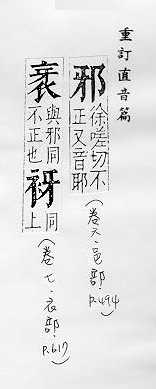 重訂直音篇
邪 徐嗟切不正又音耶
(卷六·邑部 p.494)
衺 與邪同不正也 䘸 同上
(卷七·衣部 p.617)